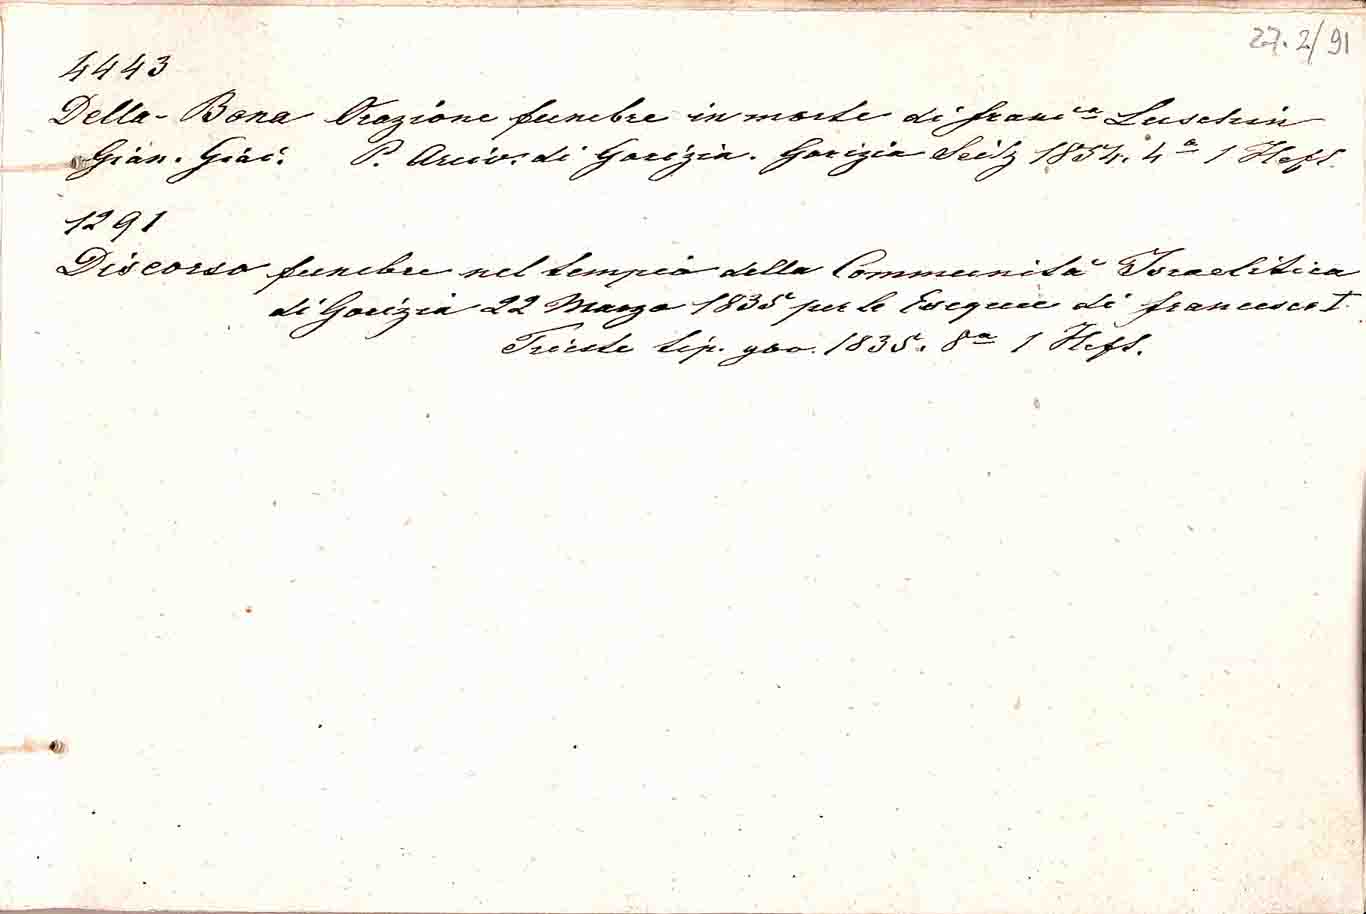 27.2/91
4443
Della-Bona Orazione funebre in morte di Franc.ca Luschin
Gian. Giac. P. Arciv. di Gorizia. Gorizia Seitz 1854. 4a 1 Heft.
1291
Discorso funebre nel tempio della Communità Israelitica
di Gorizia 22 Marzo 1835 per le Esequie di Francesco I.
Trieste tip. gov. 1835. 8a 1 Heft.